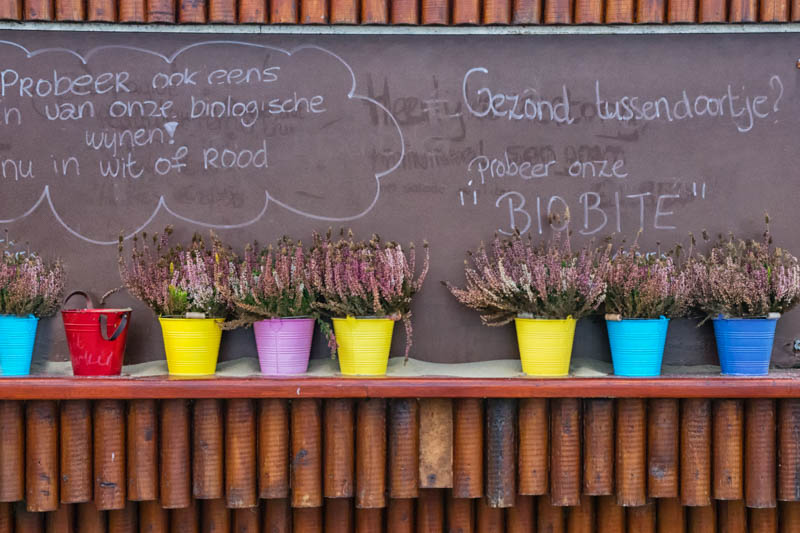 Probeer ook eens
n van onze biologische
wijnen!
nu in wit of rood
Gezond tussendoortje?
probeer onze
"BIOBITE"